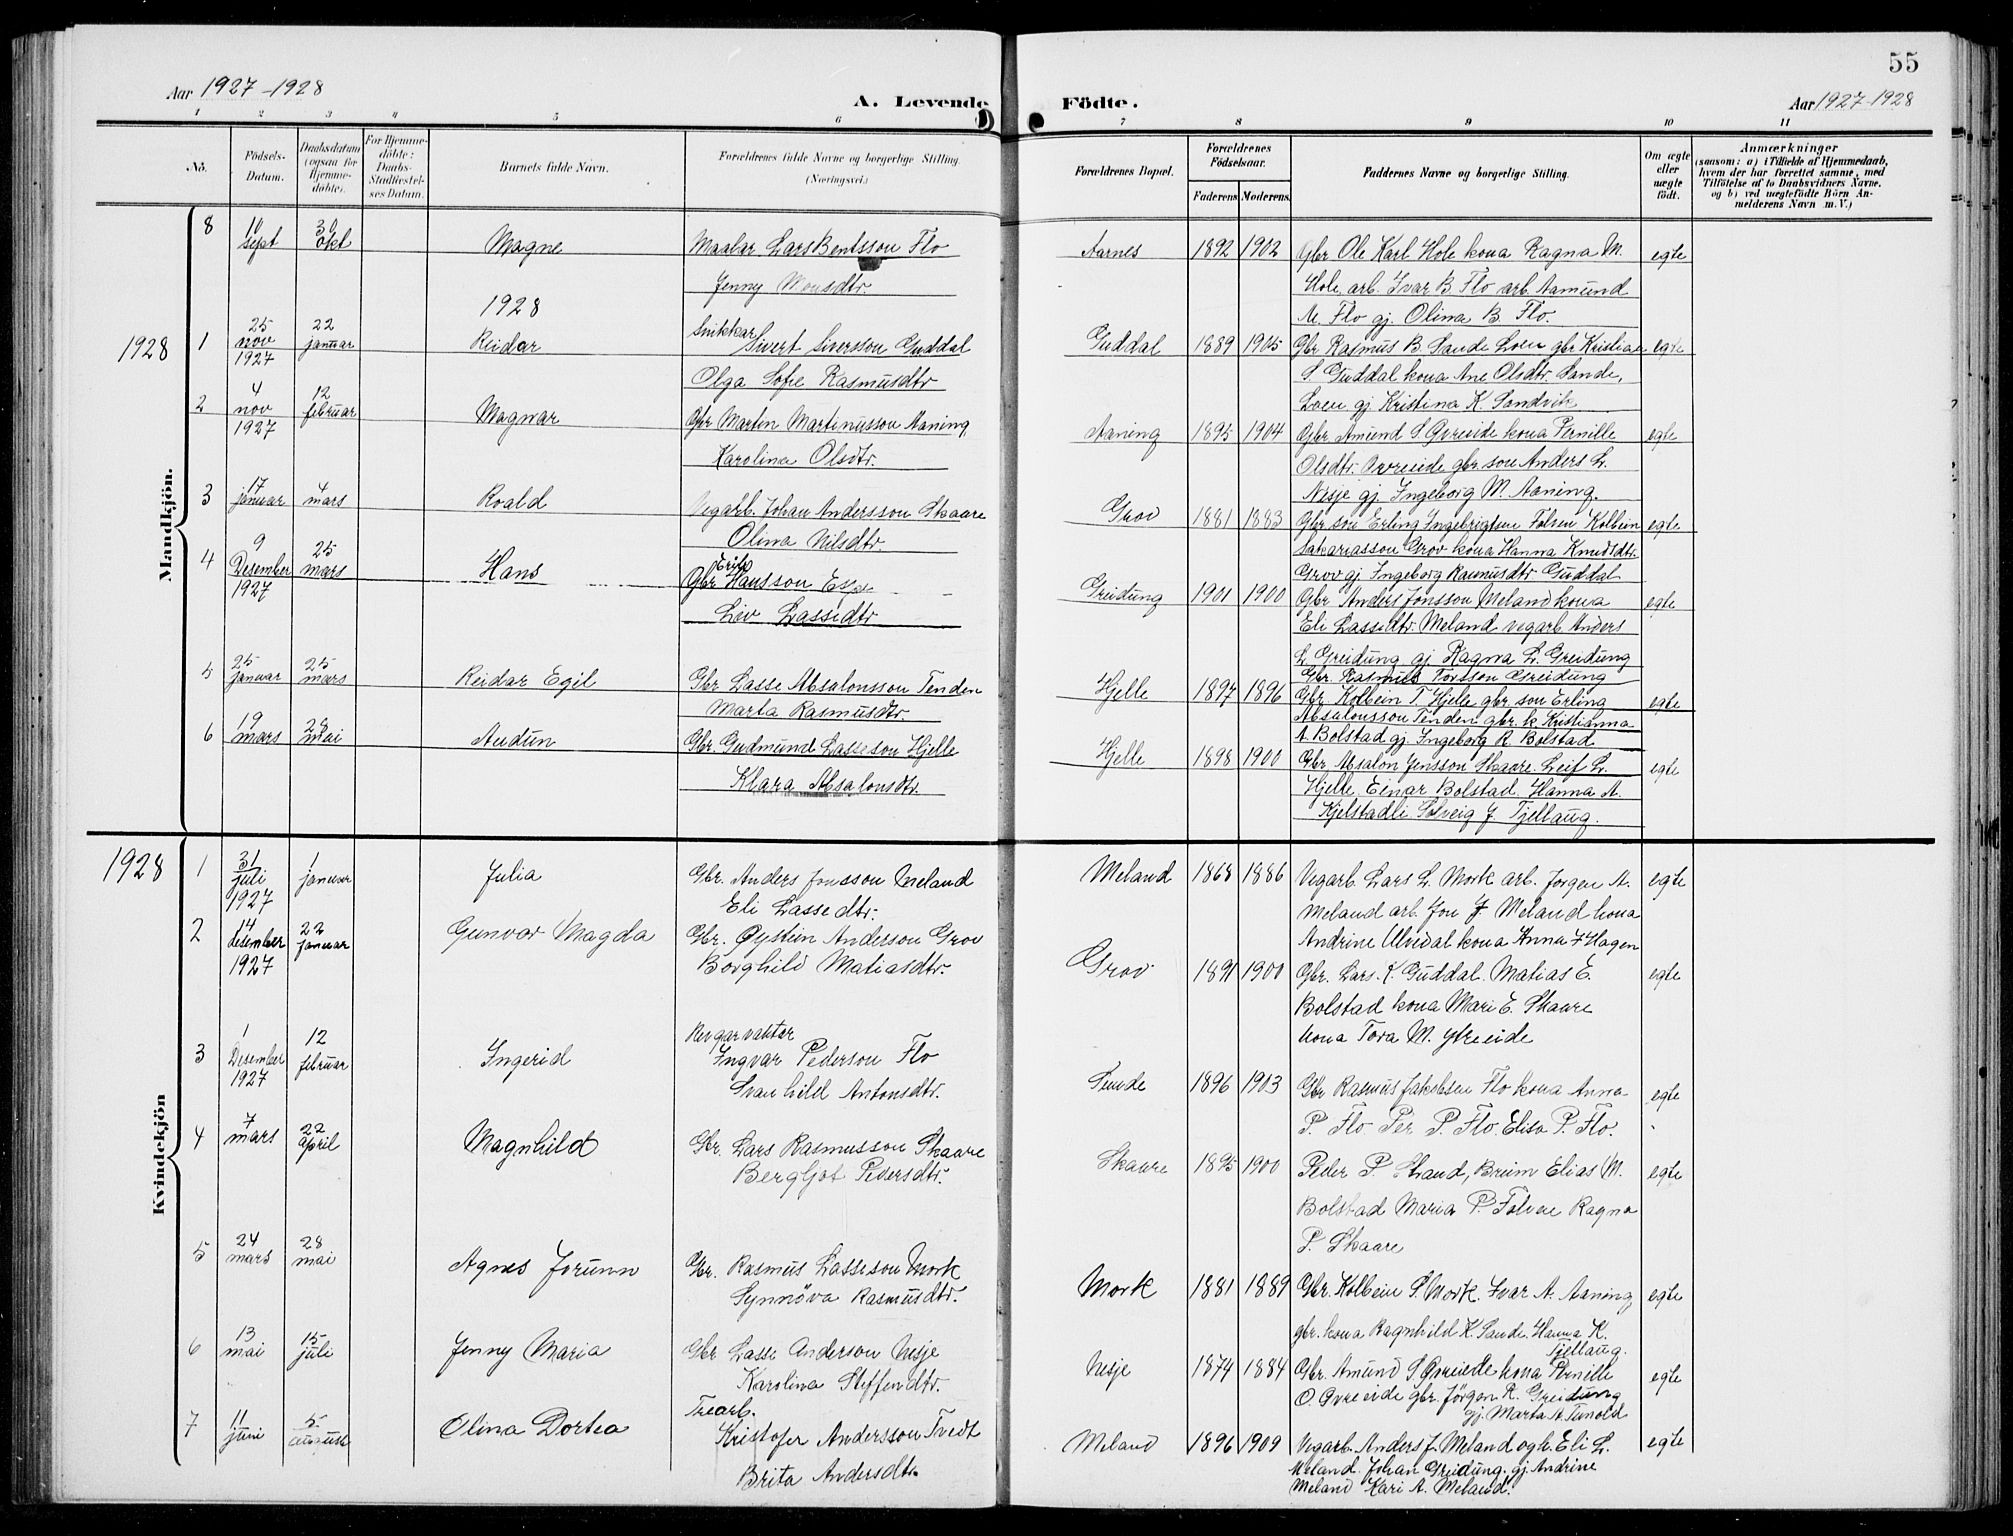 55
Aar 1927-1928
A. Levende Fødte.
Aar 1927-1928
1 2 3 4 5 6 7 8 9 10 11
No.
Fødsels-Datum.
Daabsdatum (ogsaa for Hjemme-døbte).
For Hjemme-døbte: Daabs-Stadfæstel-ses Datum.
Barnets fulde Navn.
Forældrenes fulde Navne og borgerlige Stilling. (Næringsvei.)
Forældrenes Bopæl.
Forældrenes Fødselsaar.
Faderens. Moderens.
Faddernes Navne og borgerlige Stilling.
Om ægte eller uægte født.
Anmærkninger
(saasom: a) i Tilfælde af Hjemmedaab, hvem der har forrettet samme, med Tilføielse af to Daabsvidners Navne, og b) ved uægtefødte Børn Anmelderens Navn m. V.)
Mandkjøn.
8 10 sept 30 okt Magne Maalar Lars Bentsson Flo Aarnes 1892 1902 Gbr Ole Karl Hole kona Ragna M. egte
Jenny Monsdtr. Hole arb. Ivar B. Flo arb. Aamund
M. Flo gj. Olina B. Flo.
1928
1928 1 25 nov 1927 22 januar Reidar Snikkar Sivert Siversson Guddal Guddal 1889 1905 Gbr Rasmus B. Sande Loen gbr Kristian egte
Olga Sofie Rasmusdtr S Guddal kona Ane Olsdtr. Sande,
Loen gj Kristina K. Sandvik
2 4 nov 1927 12 februar Magnar Gbr Martin Martinusson Aaning Aaning 1895 1904 Gbr Amund S Øvreeide kona Pernille egte
Karolina Olsdtr. Olsdtr. Øvreeide gbr. son Anders L.
Nesje gj Ingeborg M. Aaning.
3 17 januar 4 mars Roald Vegarb. Johan Andersson Skaare Grov 1881 1883 Gbr son Erling Ingebrigtson Folven Kolbein egte
Olina Nilsdtr. Sakariasson Grov kona Hanna Knudtdtr.
Grov gj Ingeborg Rasmusdtr Guddal
4 9 Desember 1927 25 mars Hans Gbr Erik Hansson Greidung 1901 1900 Gbr Anders Jonsson Meland kona egte
Liv Lassedtr Eli Lassedtr. Meland vegarb. Anders
L. Greidung gj. Ragna L. Greidung
Gbr. Rasmus Greidung
5 25 januar 25 mars Reidar Egil Gbr Lasse Absalonsson Tenden Hjelle 1897 1896 Gbr Kolbein T. Hjelle gbr son Erling egte
Marta Rasmusdtr. Absalonsson Tenden gbr. k Kristianna
A. Bolstad gj Ingeborg R. Bolstad
6 19 mars 28 mai Audun Gbr. Gudmund Lasseson Hjelle Hjelle 1898 1900 Gbr Absalon Jensson Skaare. Leif L. egte
Klara Absalonsdtr. Hjelle. Einar Bolstad. Hanna A.
Kjelstadli Solveig J Tjellaug.
Kvindekjøn
1928 1 31 juli 1927 1 januar Julia Gbr. Anders Jonsson Meland Meland 1868 1886 Vegarb Lars L. Mork arb. Jørgen A. egte
Eli Lassedtr. Meland arb. Jon J. Meland kona
Andrine Ulvedal kona Anna J Hagen
2 14 desember 1927 22 januar Gunvor Magda Gbr. Øystein Anderson Grov Grov 1891 1900 Gbr. Lars. K. Guddal. Matias E. egte
Borghild Matiasdtr. Bolstad kona Mari E. Skaare
kona Tora M. Ytreeide
3 1 Desember 1927 12 februar Ingerid Revgarvaktar Ingvar Pederson Flo Sunde 1896 1903 Gbr Rasmus Jakobsen Flo kona Anna egte
Svanhild Antonsdtr. P. Flo Per P. Flo. Elisa P. Flo.
4 7 mars 22 april Magnhild Gbr. Lars Rasmusson Skaare Skaare 1895 1900 Peder P. Strand, Breim Elias M. egte
Bergljot Pedersdtr. Bolstad Maria P. Folven Ragna
P. Skaare
5 24 mars 28 mai Agnes Jorunn Gbr. Rasmus Lasseson Mork Mork 1881 1889 Gbr. Kolbein S. Mork. Ivar A. Aaning egte
Synnöva Rasmusdtr. gbr. kona Ragnhild K. Sande. Hanna K.
Tjellaug.
6 13 mai 15 juli Jenny Maria Gbr Lasse Anderson Nesje Nesje 1874 1884 Gbr. Amund S. Øvreeide kona Pernille egte
Karolina Steffendtr. O. Øvreeide gbr. Jørgen R. Greidung
gj. Marta A. Tunold
7 11 juni 5 august Olina Dortea Trearb. Kristofer Andersson Tvedt Meland 1896 1909 Vegarb. Anders J. Meland og k. Eli L. egte
Brita Andersdtr. Meland. Johan Greidung. gj. Andrine
Meland Kari A. Meland.